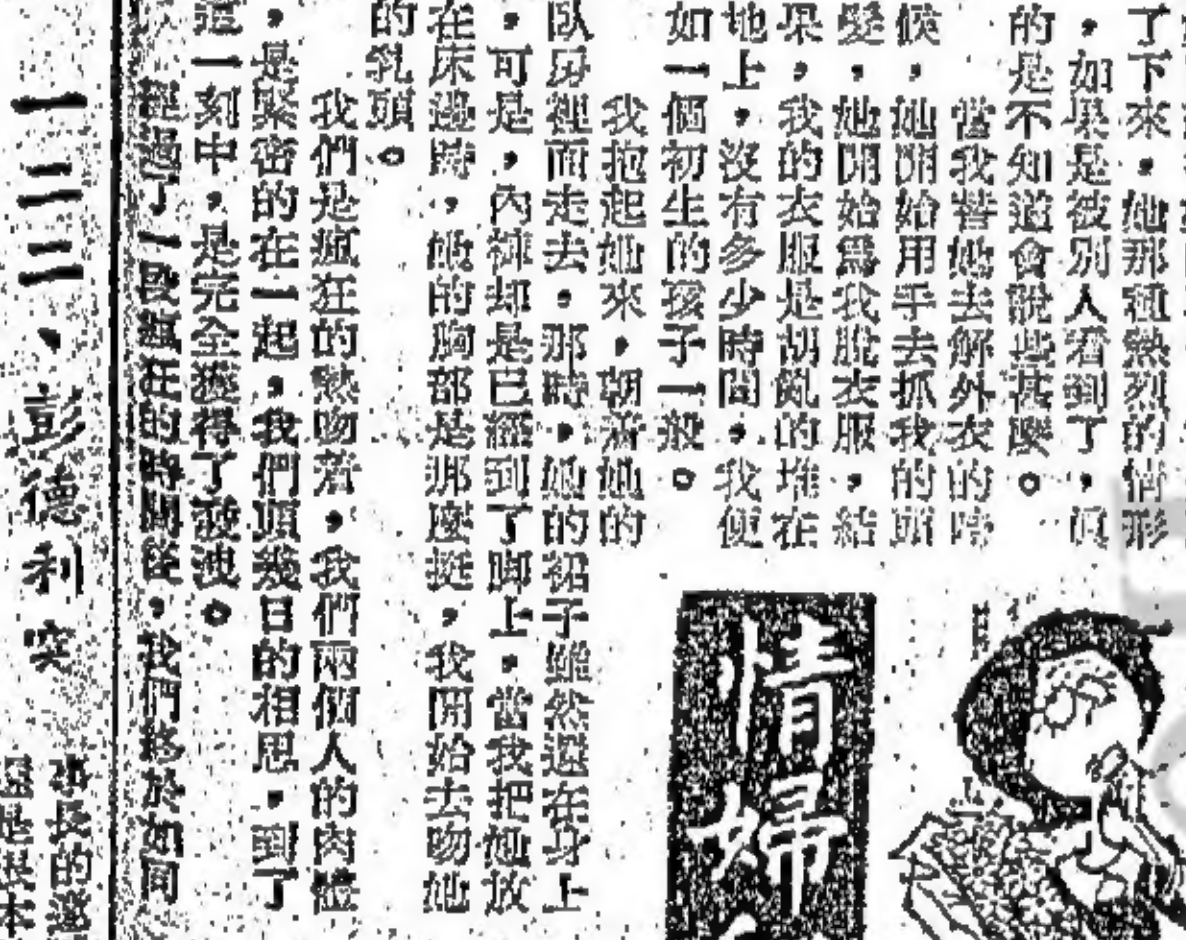 了下來，她那種熱烈的情形
，如果是被別人看到了，眞
的是不知道會說些甚麼。
當我替她去解外衣的時
候，她開始用手去抓我的頭
髮，她開始爲我脫衣服，結
果，我的衣服是胡亂的堆在
地上，沒有多少時間，我便
如一個初生的孩子一般。
我抱起她來，朝着她的
臥房裡面走去，那時，她的裙子雖然還在身上
，可是，內褲却是已經到了脚上，當我把她放
在床邊時，她的胸部是那麼挺，我開始去吻她
的乳頭。
我們是瘋狂的熱吻着，我們兩個人的肉體
，是緊密的在一起，我們頭幾日的相思，到了
這一刻中，是完全獲得了發洩。
經過了一段瘋狂的時間後，我們終於如同
一三三，彭德利突
情婦